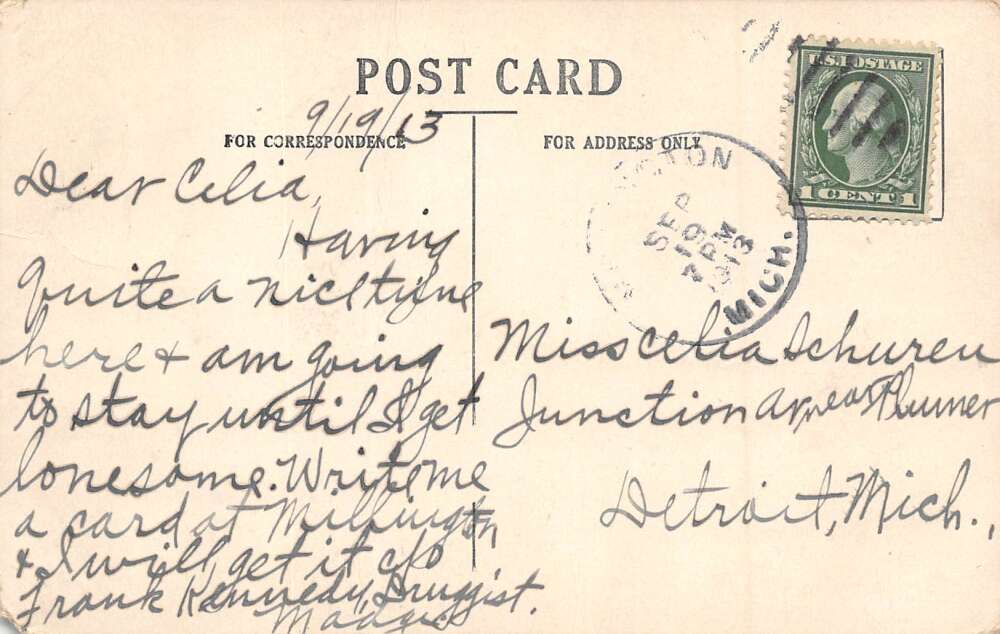 POST CARD
FOR CORRESPONDENCE
FOR ADDRESS ONLY
U.S. POSTAGE
1 CENT 1
SEP
19
7 PM
1913
MICH.
9/19/13
Dear Celia,
Having
quite a nice time
here & am going
to stay until I get
lonesome. Write me
a card at Millington
& I will get it c/o
Frank Kennedy, Druggist.
Madge.
Miss Celia Schuren
Junction Av near Plumer
Detroit, Mich.,